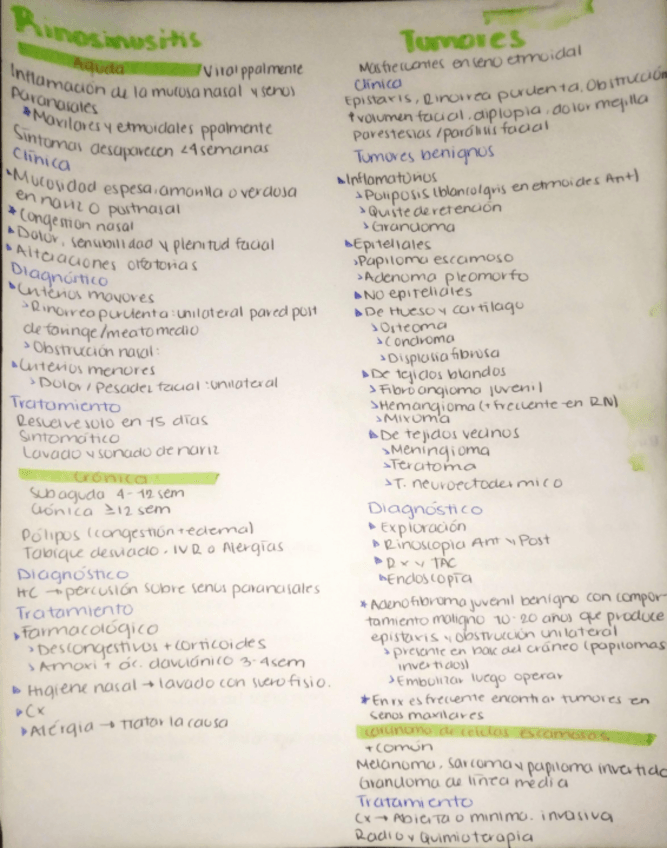 Rinosinusitis
Aguda / Viral ppalmente
Inflamación de la mucosa nasal y senos
paranasales
*Maxilares y etmoidales ppalmente
Síntomas desaparecen <4semanas
Clínica
Mucosidad espesa, amarilla o verdosa
en nariz o postnasal
Congestion nasal
Dolor, sensibilidad y plenitud facial
Alteraciones olfatorias
Diagnóstico
Criterios mayores
>Rinorrea purulenta: unilateral pared post
de faringe/meato medio
>Obstrucción nasal:
Criterios menores
>Dolor/Pesadez facial: unilateral
Tratamiento
Resuelve solo en 15 días
Sintomático
Lavado y sonado de nariz
Crónica
Subaguda 4-12 sem
Crónica ≥12 sem
Pólipos (congestión+edema)
Tabique desviado, IVR o Alergias
Diagnóstico
HC → percusión sobre senos paranasales
Tratamiento
Farmacológico
>Descongestivos + corticoides
>Amoxi + ác. clavulánico 3-4sem
Higiene nasal → lavado con suero fisio.
Cx
Alergia → Tratar la causa
Tumores
Mas frecuentes en seno etmoidal
Clínica
Epistaxis, Rinorrea purulenta, Obstrucción
↑volumen facial, diplopia, dolor mejilla
parestesias/parálisis facial
Tumores benignos
Inflamatorios
>Poliposis (blanco/gris en etmoides Ant)
>Quiste de retención
>Granuloma
Epiteliales
>Papiloma escamoso
>Adenoma pleomorfo
No epiteliales
De hueso y cartílago
>Osteoma
>Condroma
>Displasia fibrosa
De tejidos blandos
>Fibroangioma juvenil
>Hemangioma (+frecuente en RN)
>Mixoma
De tejidos vecinos
>Meningioma
>Teratoma
>T. neuroectodermico
Diagnóstico
Exploración
Rinoscopia Ant y Post
Rx y TAC
Endoscopía
*Adenofibroma juvenil benigno con compor-
tamiento maligno 10-20 años que produce
epistaxis y obstrucción unilateral
>presente en base del cráneo (papilomas
invertidos)
>Embolizar luego operar
*En rx es frecuente encontrar tumores en
senos maxilares
Carcinoma de celulas escamosas
+común
Melanoma, Sarcoma y papiloma invertido
Granuloma de línea media
Tratamiento
Cx → Abierta o minima. invasiva
Radio y Quimioterapia